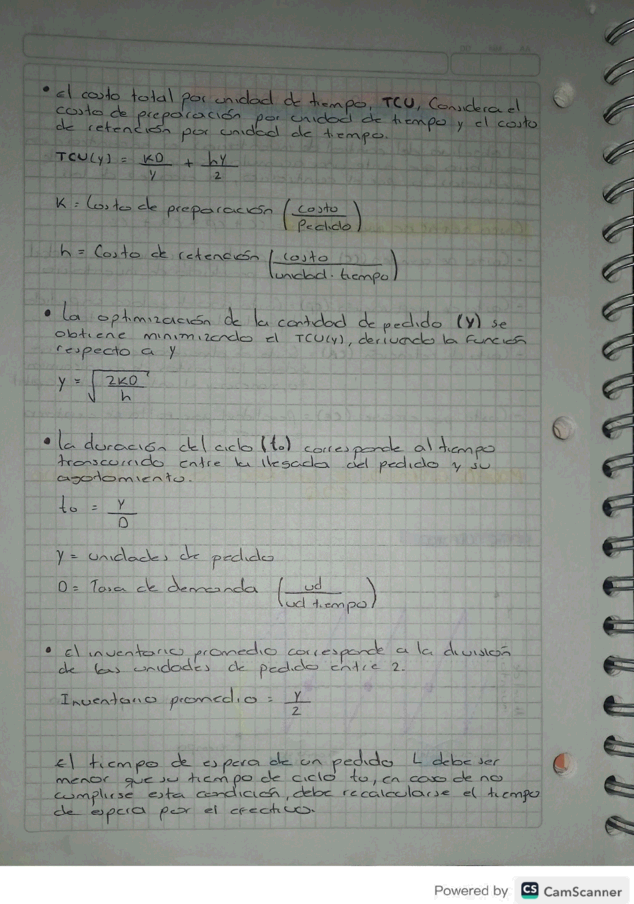 • El costo total por unidad de tiempo, TCU, Considera el
costo de preparación por unidad de tiempo y el costo
de retención por unidad de tiempo.
TCU(y) = KD/y + hy/2
K = Costo de preparación (costo/Pedido)
h = Costo de retención (costo/unidad · tiempo)
• La optimización de la cantidad de pedido (y) se
obtiene minimizando el TCU(y), derivando la función
respecto a y
y = √(2KD/h)
• la duración del ciclo (to) corresponde al tiempo
transcurrido entre la llegada del pedido y su
agotamiento.
to = y/D
y = unidades de pedido
D = Tasa de demanda (ud/ud tiempo)
• El inventario promedio corresponde a la división
de las unidades de pedido entre 2.
Inventario promedio = y/2
El tiempo de espera de un pedido L debe ser
menor que su tiempo de ciclo to, en caso de no
cumplirse esta condición, debe recalcularse el tiempo
de espera por el efectivo.
Powered by CS CamScanner